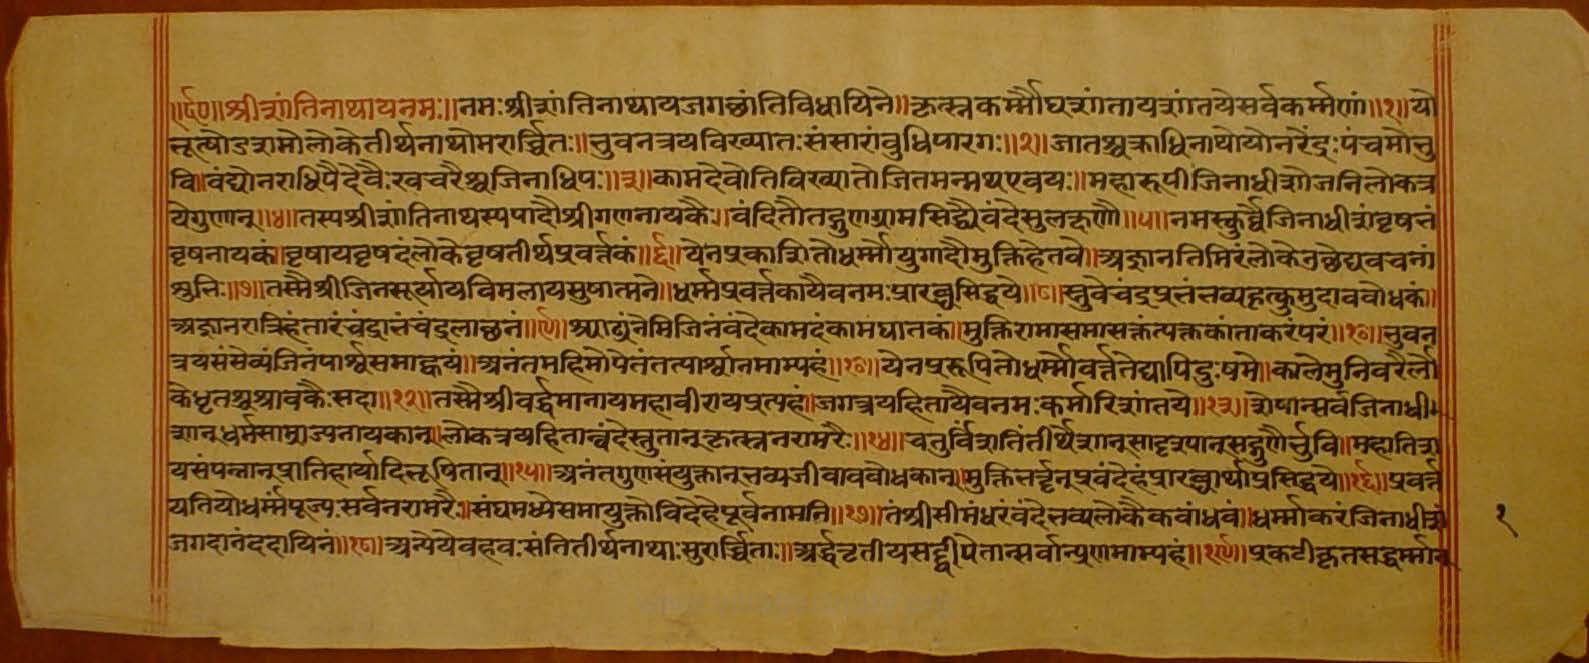 ॥ॐ॥श्रीशांतिनाथायनमः॥नमःश्रीशांतिनाथायजगच्छांतिविधायिने॥कृत्स्नकर्म्मौघशांतायशांतयेसर्वकर्म्मणां॥१॥यो
त्रूत्पौडशमोलोकेतीर्थनाथोमरार्च्चितः॥भुवनत्रयविख्यातःसंसारांबुधिपारगः॥२॥जातश्चक्राधिनाथोयोनरेंद्रःपंचमोभु
वि॥वंद्योनराधिपैर्देवैःखचरैश्चजिनाधिपः॥३॥कामदेवोतिविख्यातोजितमन्मथएवयः॥महारूपीजिनाधीशोजनिलोकत्र
येगुणान्॥४॥तस्यश्रीशांतिनाथस्यपादौश्रीगणनायकैः॥वंदितौतद्गुणग्रामसिद्ध्यैवंदेसुलक्षणौ॥५॥नमस्कुर्वेजिनाधीशंवृषभं
वृषनायकं॥वृषायवृषदंलोकेवृषतीर्थप्रवर्त्तकं॥६॥येनप्रकाशितोधर्म्मोयुगादौमुक्तिहेतवे॥अज्ञानतिमिरंलोकेउछेद्यवचनां
शुभिः॥७॥तस्मैश्रीजिनसूर्यायविमलायसुषात्मने॥धर्म्मप्रवर्त्तकायैवनमःप्रारब्धसिद्धये॥८॥स्तुवेचंद्रप्रभंभव्यहृत्कुमुदावबोधकं॥
अज्ञानरात्रिहंतारंचंद्राभंचंद्रलाच्छनं॥९॥श्याद्युंनेमिजिनंवंदेकामदंकामघातकं॥मुक्तिरामासमासक्तंत्यक्तकांताकरंपरं॥१०॥भुवन
त्रयसंसेव्यंजिनंपार्श्वसमाह्वयं॥अनंतमहिमोपेतंतत्पार्श्वानमाम्यहं॥११॥येनप्ररूपितोधर्म्मोवर्त्ततेद्यापिदुःषमे॥कालेमुनिवरैर्लो
केधृतश्चश्रावकैःसदा॥१२॥तस्मैश्रीवर्द्धमानायमहावीरायप्रत्यहं॥जगत्त्रयहितायैवनमःकर्मारिशांतये॥१३॥शेषान्सर्वजिनाधी
शान्धर्मसाम्राज्यनायकान्॥लोकत्रयहितान्वंदेस्तुतान्कृत्स्ननरामरैः॥१४॥चतुर्विंशतिंतीर्थेशान्सादृशान्सद्गुणैर्भुवि॥महातिश
यसंपन्नान्प्रातिहार्यादिभूषितान्॥१५॥अनंतगुणसंयुक्तान्भव्यजीवावबोधकान्॥मुक्तिभर्तॄन्प्रवंदेहंप्रारब्धार्थप्रसिद्धये॥१६॥प्रवर्त्त
यतियोधर्म्मंपूज्यःसर्वनरामरैः॥संघमध्येसमायुक्तोविदेहेपूर्वनामनि॥१७॥तंश्रीसीमंधरंवंदेभव्यलोकैकबांधवं॥धर्म्माकरंजिनाधीशं
जगदानंददायिनं॥१८॥अन्येयेबहवःसंतितीर्थनाथाःसुरार्च्चिताः॥अर्द्धतृतीयसद्द्वीपेतान्सर्वान्प्रणमाम्यहं॥१९॥प्रकटीकृतसद्धर्म्मान्
१